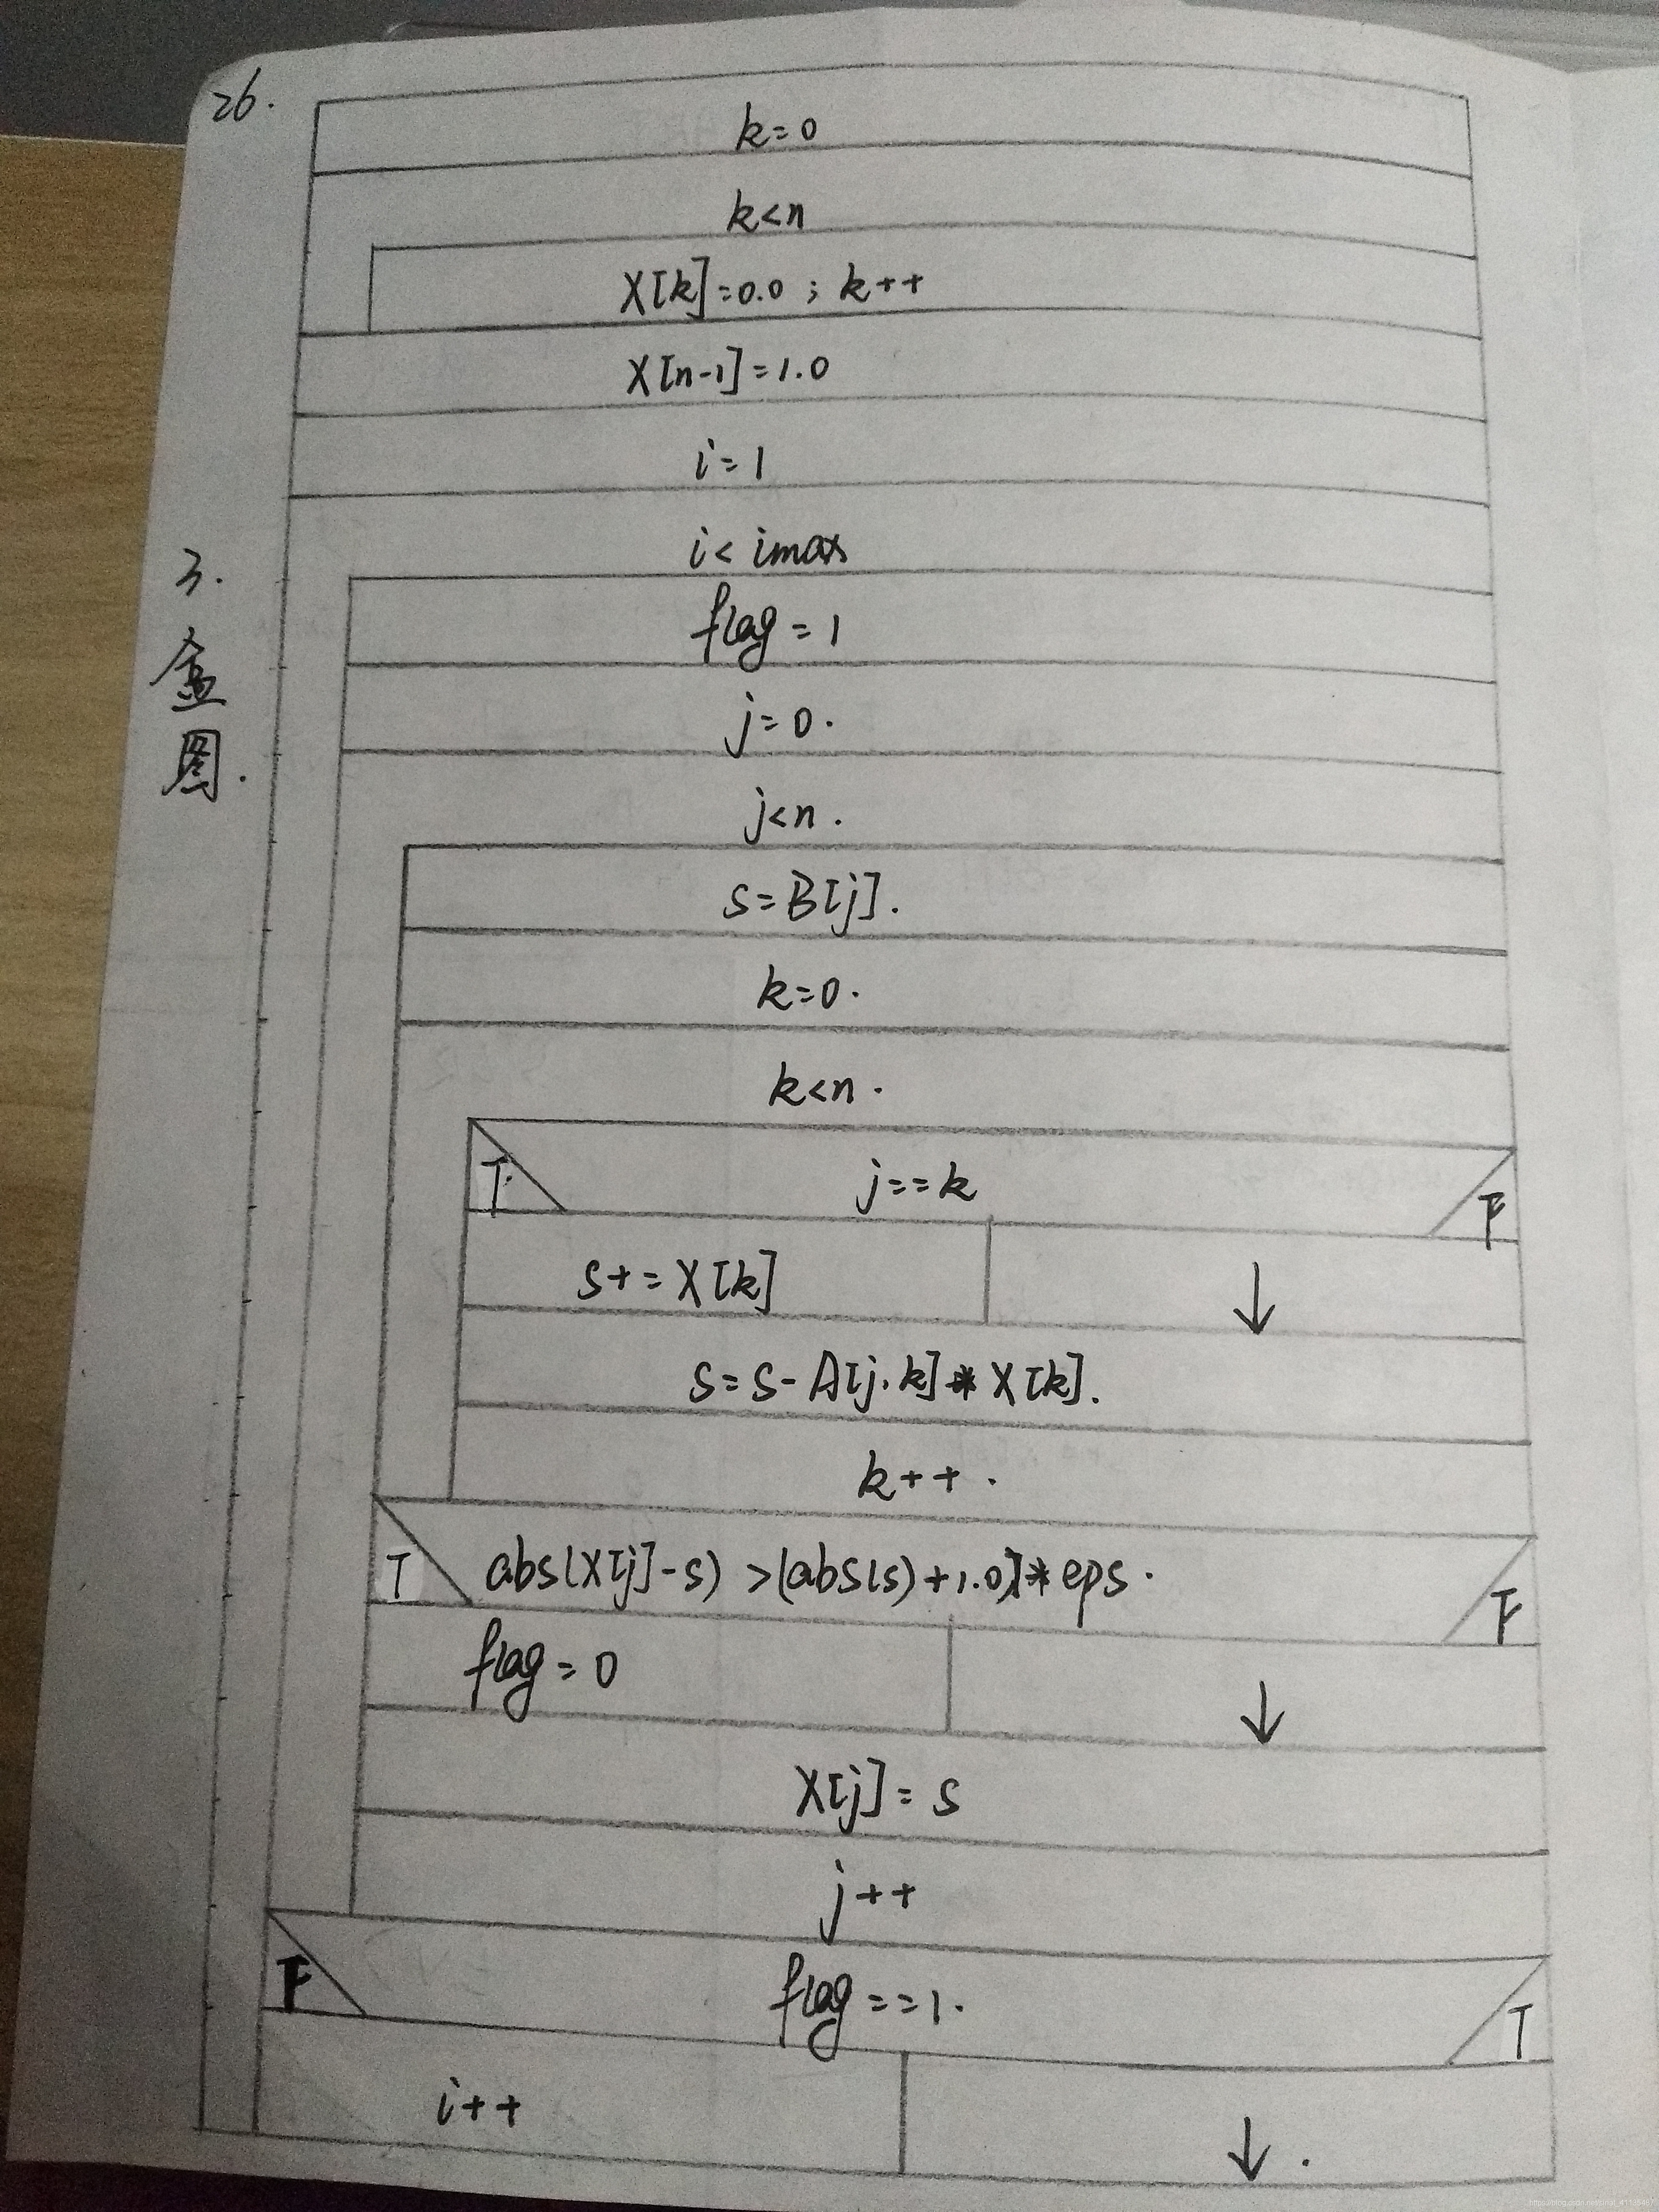 26.
k=0
k<n
X[k]=0.0 ; k++
X[n-1]=1.0
i=1
i< imax
3.
盒
图.
flag=1
j=0.
j<n.
s=B[j].
k=0.
k<n.
T
j==k
F
s+=X[k]
↓
s=s-A[j.k]*X[k].
k++.
T
abs(X[j]-s) >(abs(s)+1.0)*eps.
F
flag=0
↓
X[j]=s
j++
F
flag==1.
T
i++
↓.